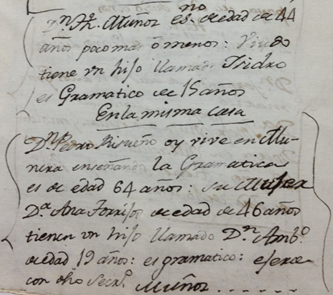 no
Dn. Fr. Muñoz es de edad de 44
años poco mas ó menos: Viudo
tiene vn hijo llamado Isidro
es Gramatico de 15 años
En la misma casa
Dn. Pedro Risueño oy vive en Mu-
nera enseñando la Gramatica
es de edad 64 años: su Muger
Da. Ana de edad de 46 años
tienen vn hijo llamado Dn. Ambo.
de edad 19 años: es gramatico: exerce
con dho Secro. Muñoz